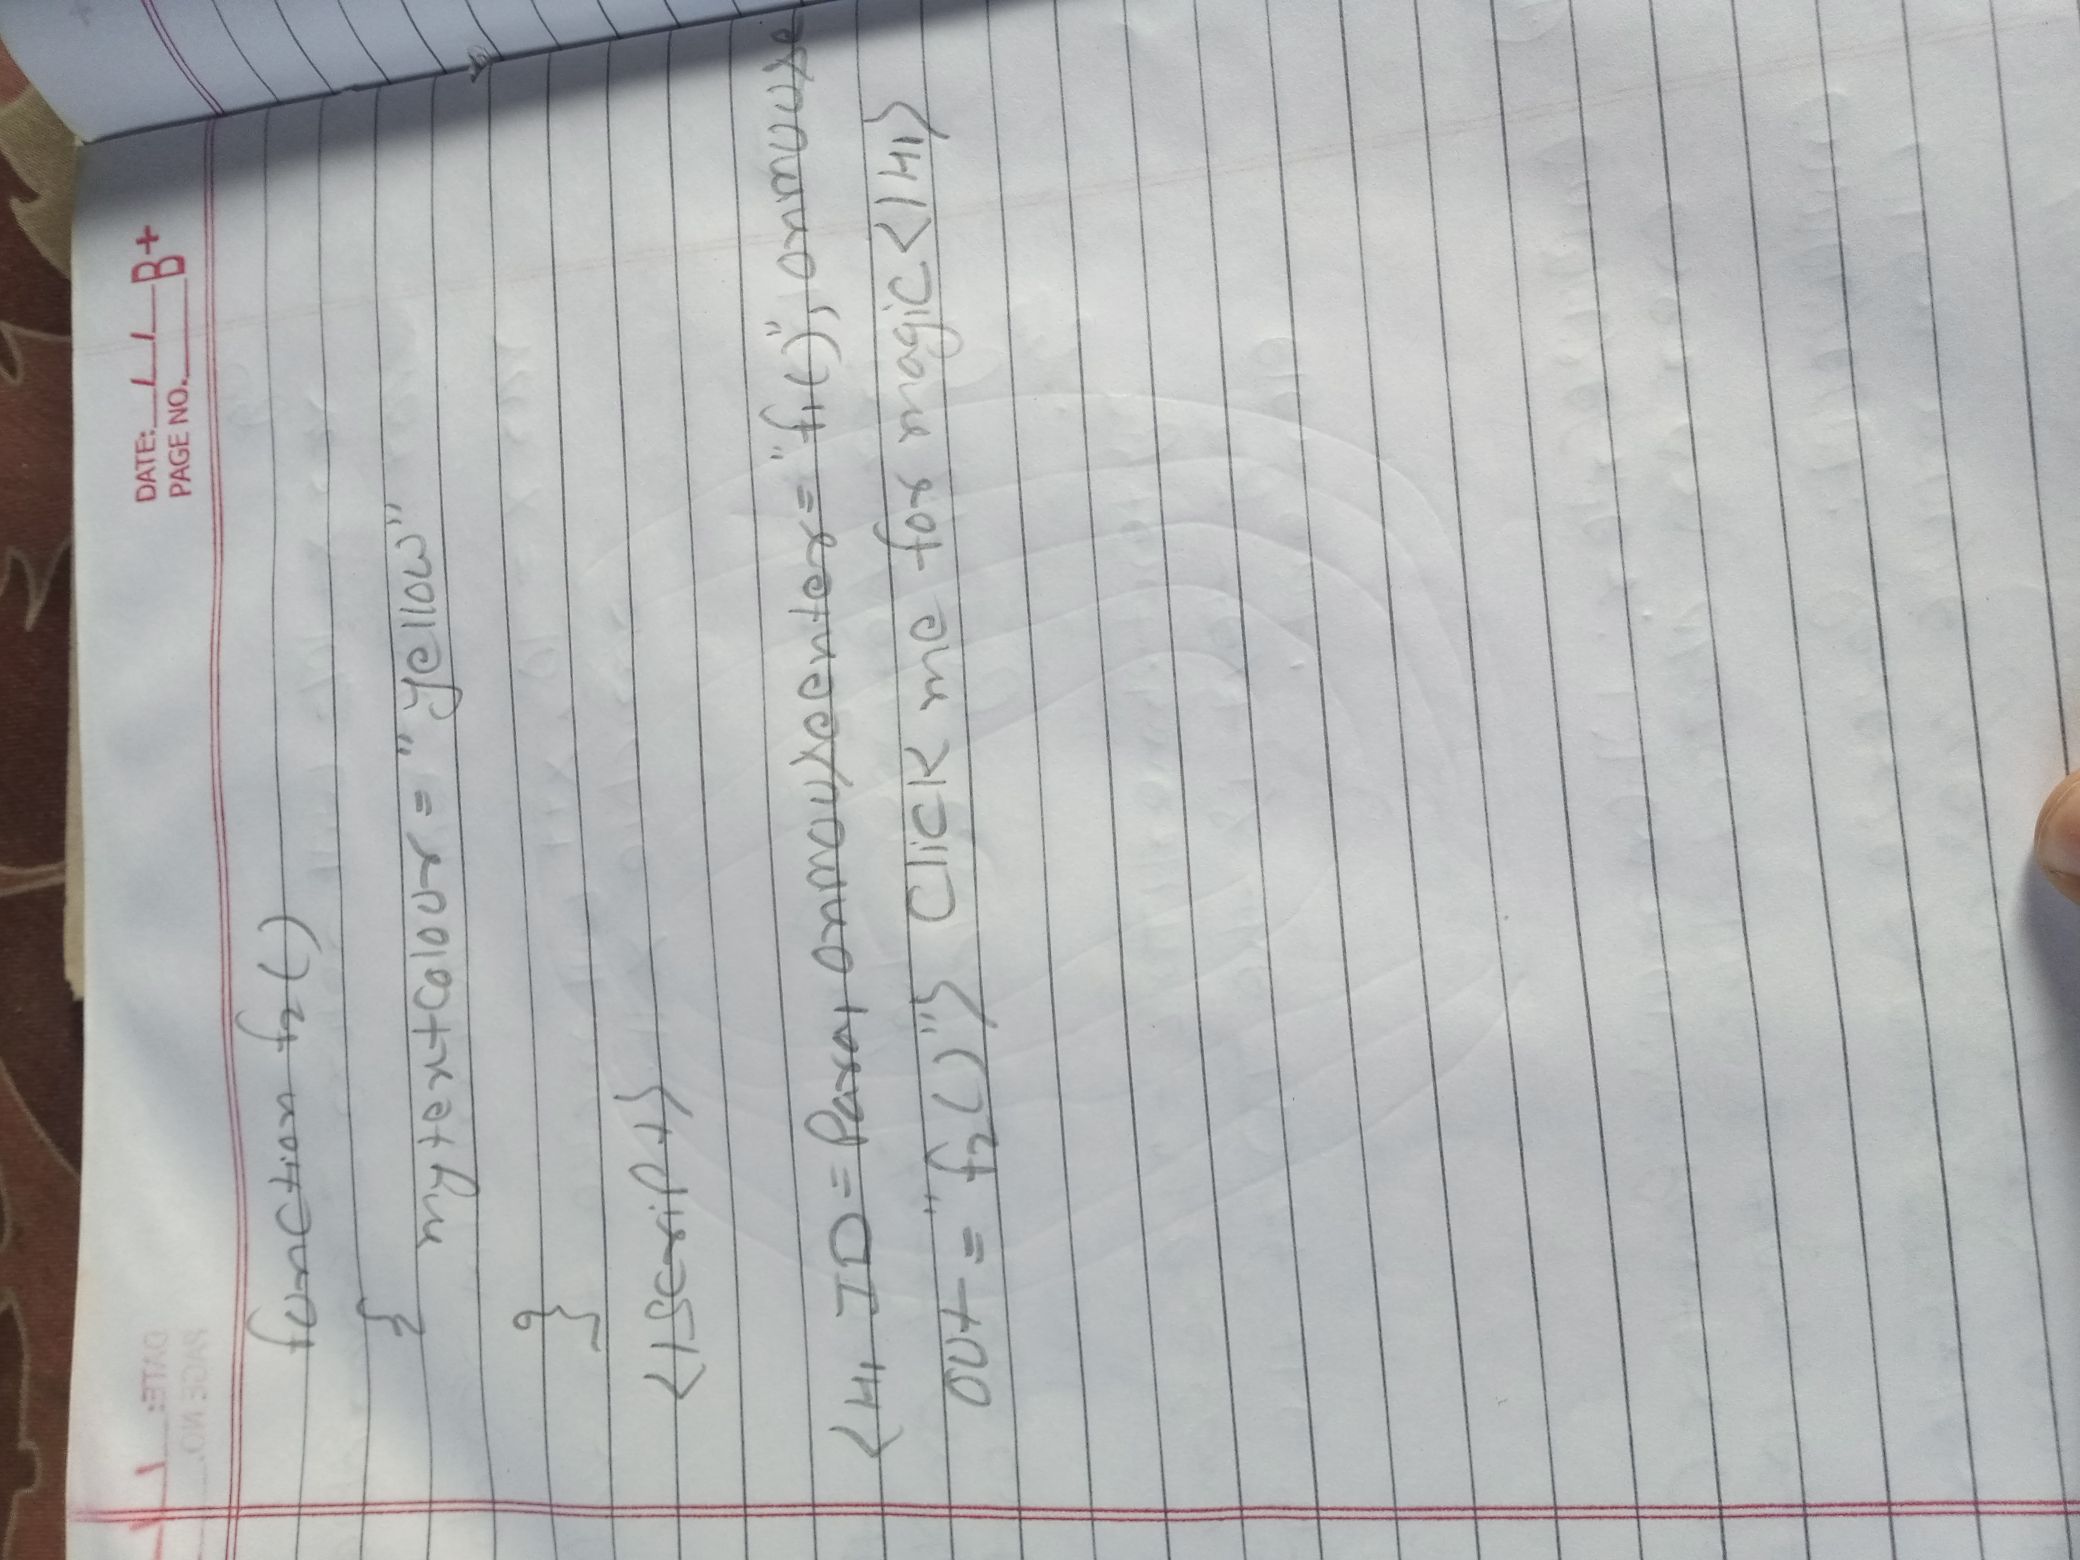 DATE: / / B+
PAGE NO. B
function f2()
{
mytextcolour = "yellow"
}
</script>
<H1 ID = Para1 onmouseenter = "f1()", onmouse
out = "f2()"> Click me for magic </H1>